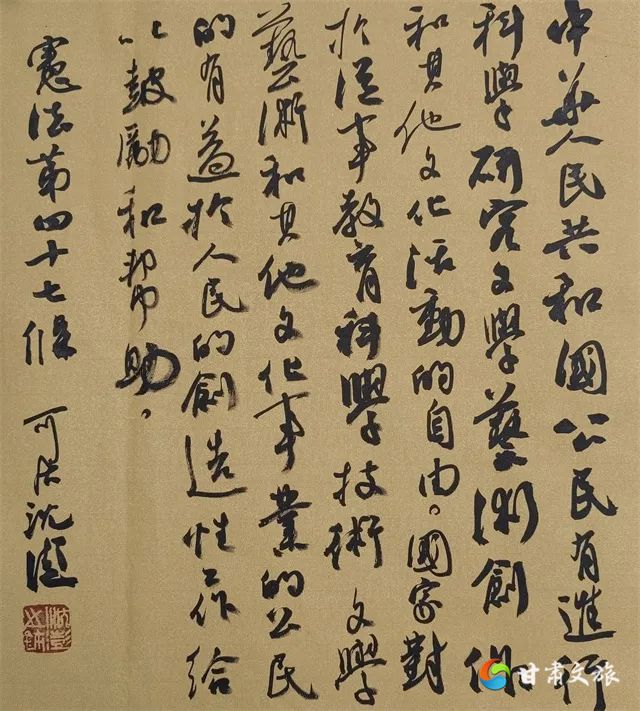 中華人民共和國公民有進行
科學研究文學藝術創作
和其他文化活動的自由。國家對
於從事教育科學技術文學
藝術和其他文化事業的公民
的有益於人民的創造性工作給
以鼓勵和幫助。
憲法第四十七條 沈
甘肃文旅